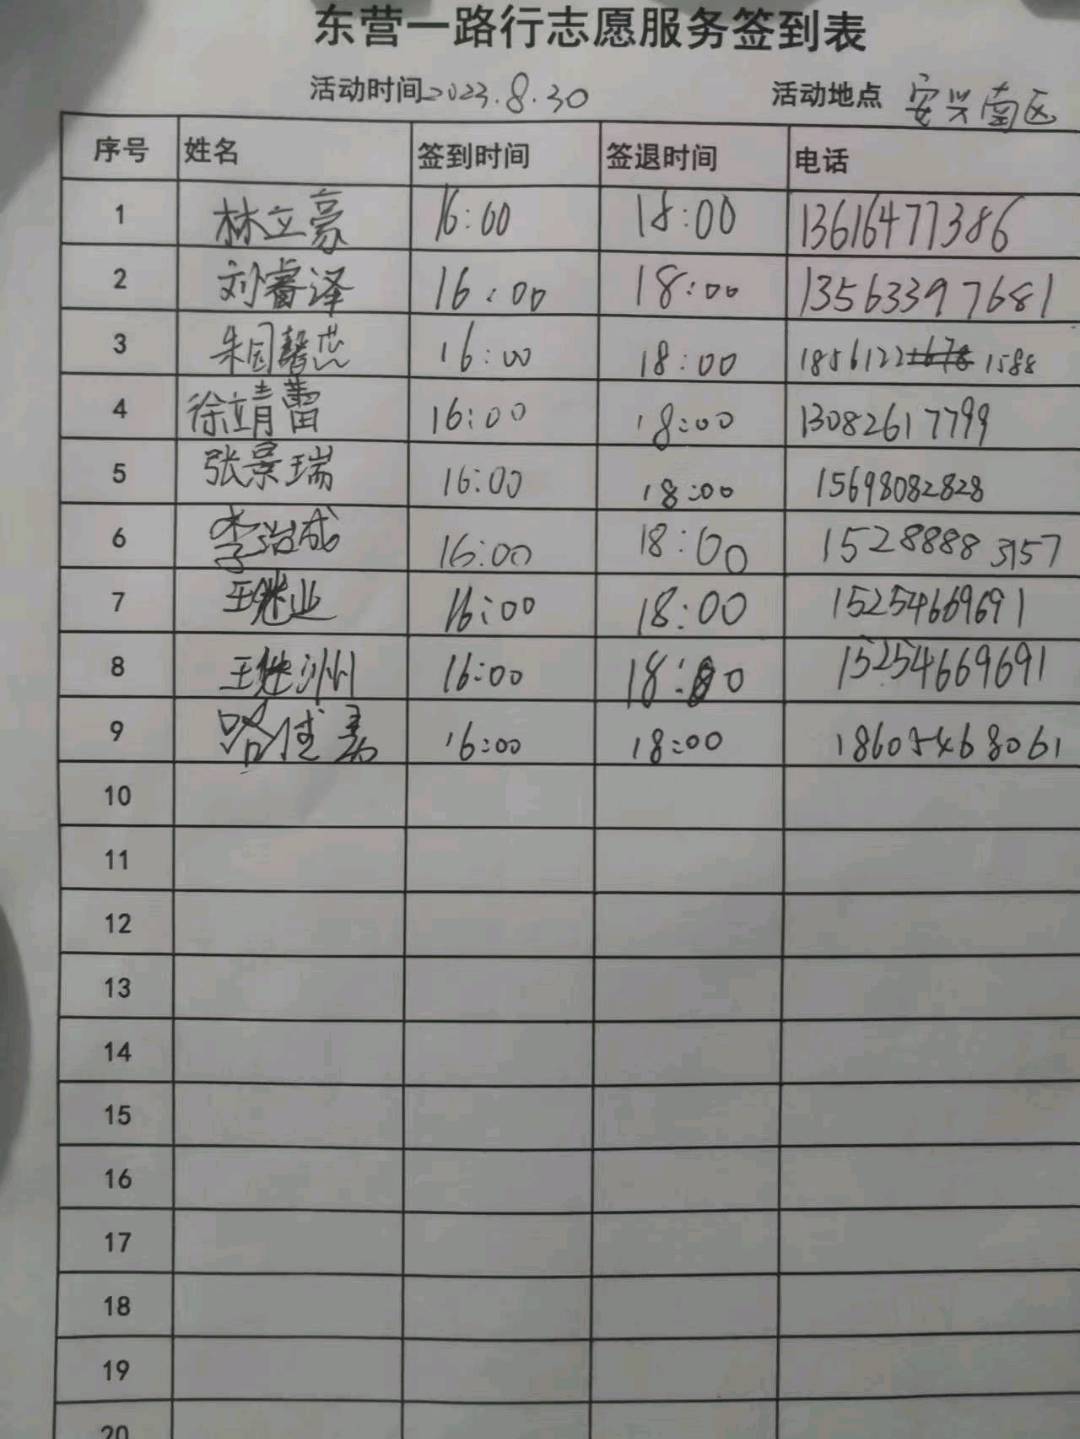 东营一路行志愿服务签到表
活动时间2023.8.30 活动地点 安兴南区
序号 姓名 签到时间 签退时间 电话
1 林立豪 16:00 18:00 13616477386
2 刘睿泽 16:00 18:00 13563397681
3 朱园馨芯 16:00 18:00 1856122 1588
4 徐靖蕾 16:00 18:00 13082617799
5 张景瑞 16:00 18:00 15698082828
6 李浩成 16:00 18:00 15288883157
7 王继业 16:00 18:00 15254669691
8 王继洲 16:00 18:00 15254669691
9 路佳 16:00 18:00 18605468061
10
11
12
13
14
15
16
17
18
19
20